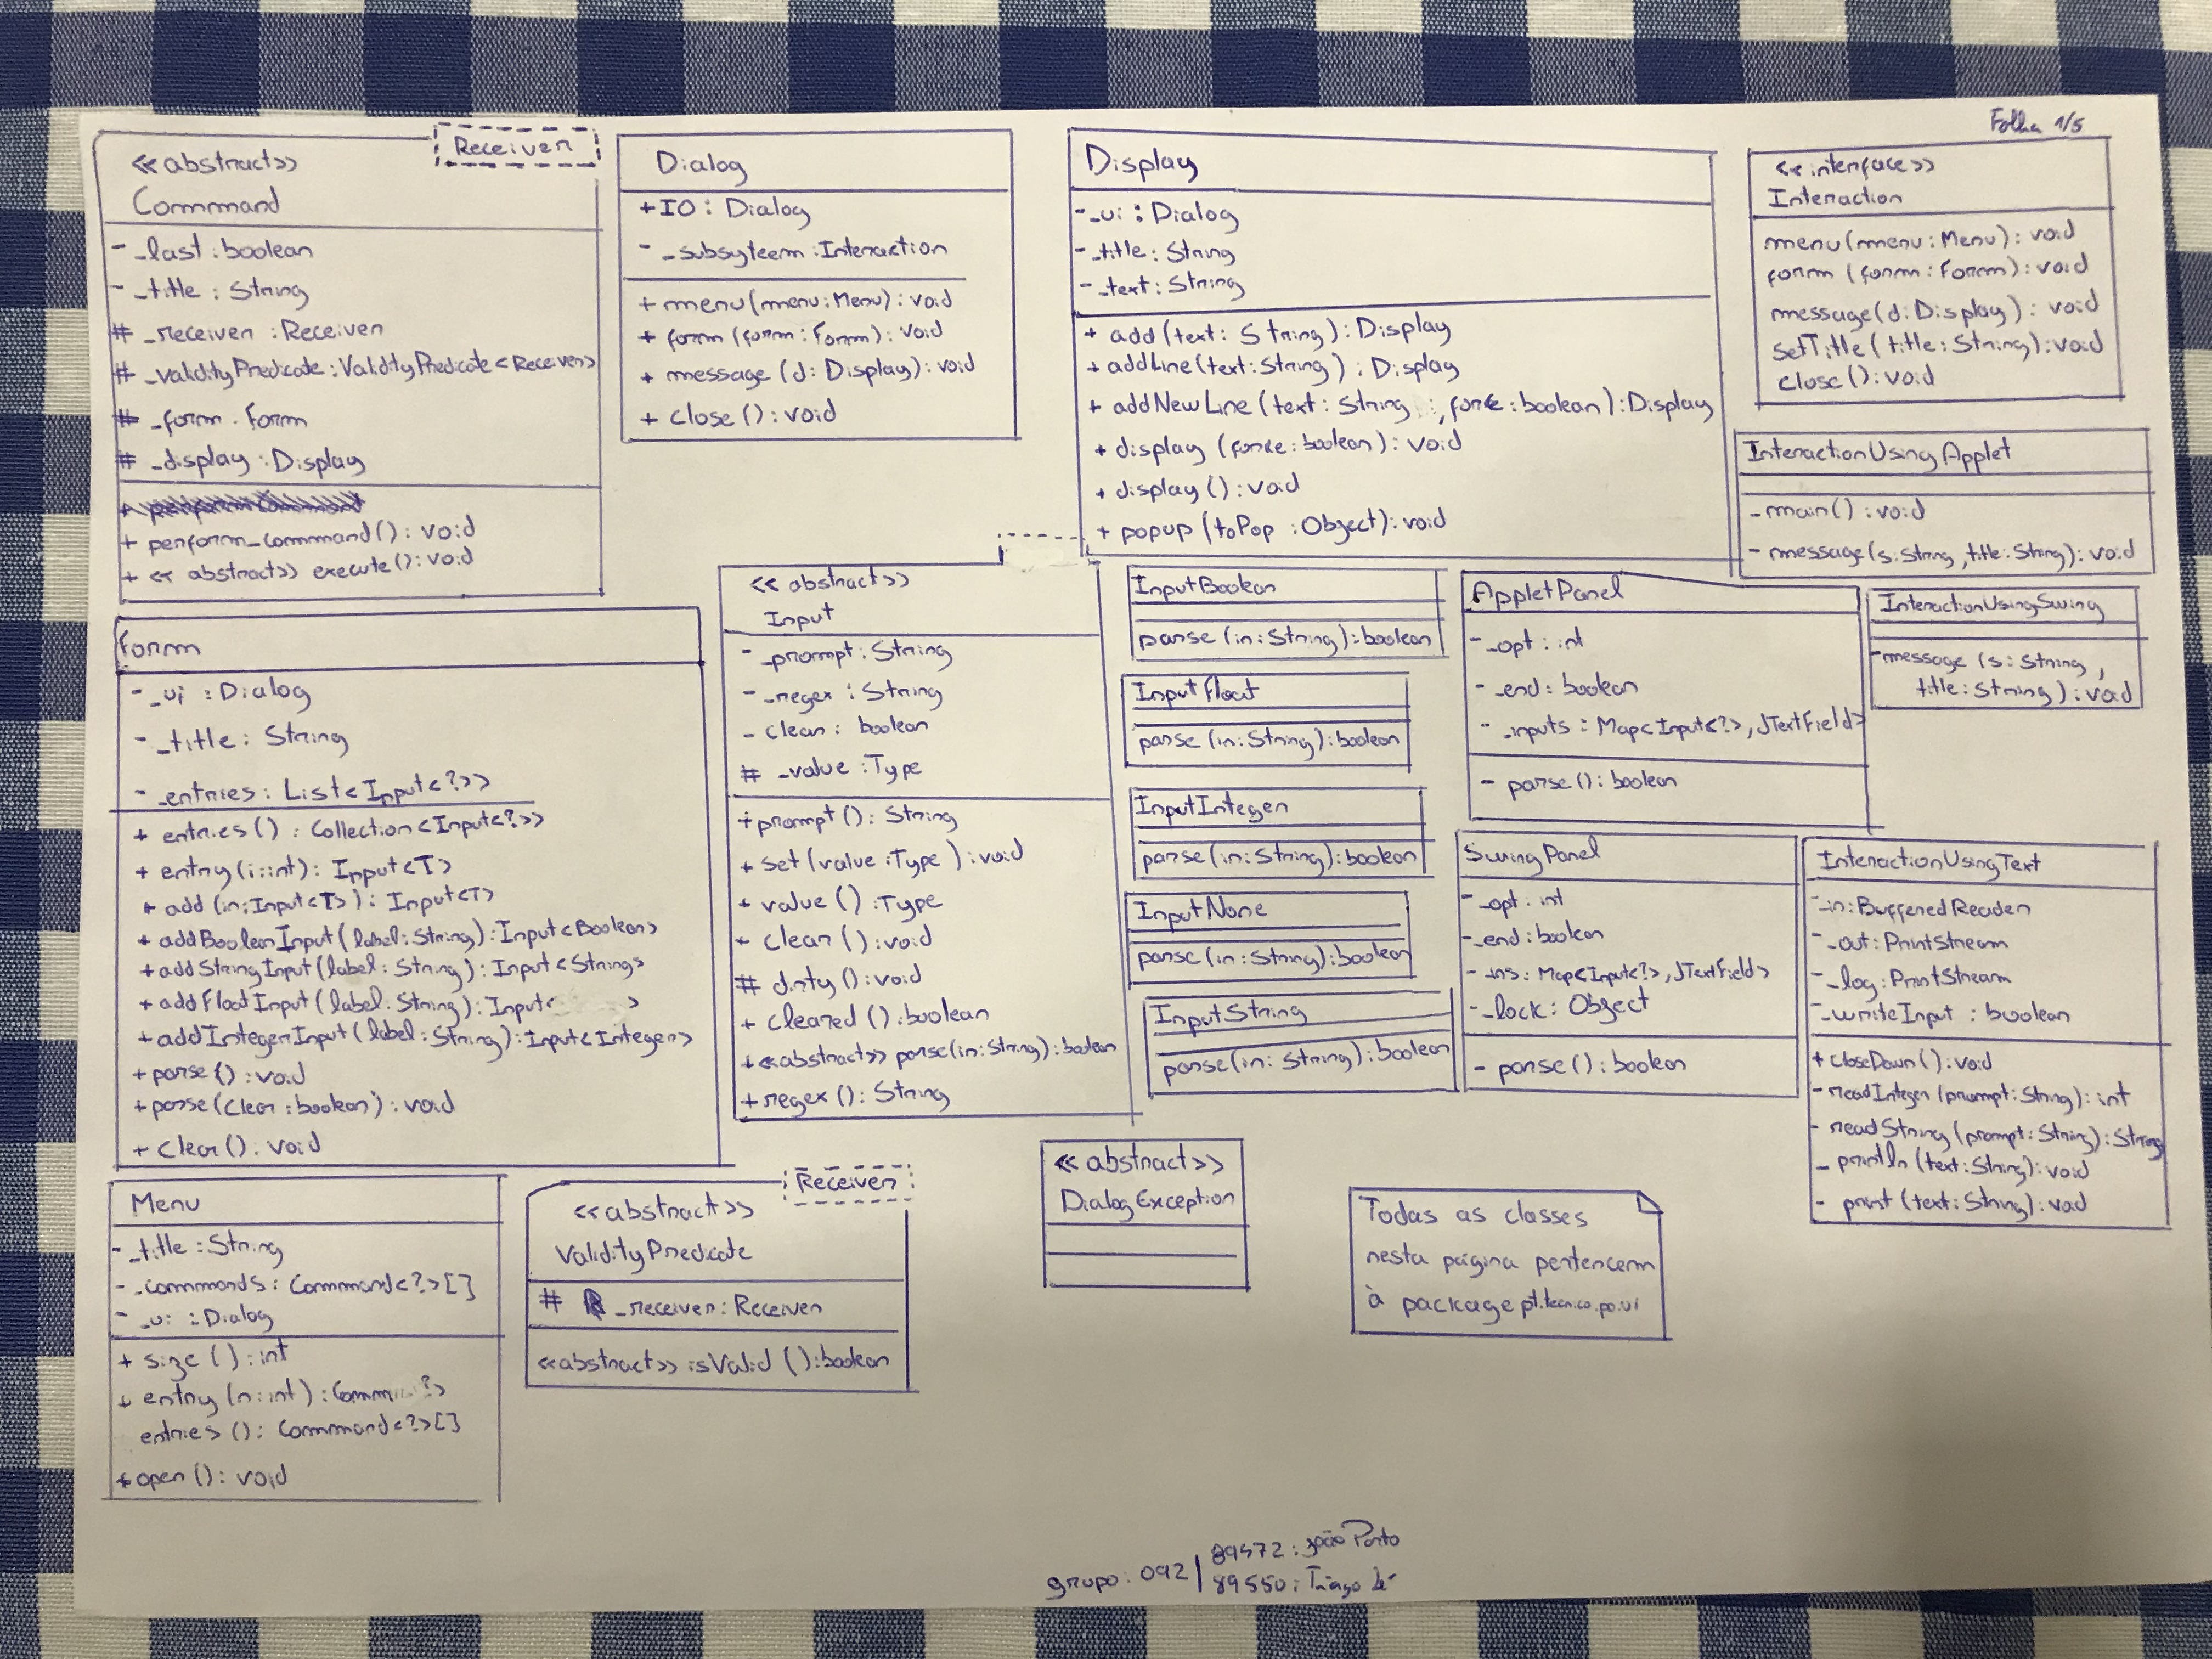 Folha 1/5
Receiver
<<abstract>>
Command
- _last : boolean
- _title : String
# _receiver : Receiver
# _validityPredicate : ValidityPredicate<Receiver>
# _form : Form
# _display : Display
+ perform_command() : void
+ << abstract>> execute() : void
Dialog
+ IO : Dialog
- _subsyteem : Interaction
+ menu(menu : Menu) : void
+ form (form : Form) : void
+ message (d : Display) : void
+ close () : void
Display
- _ui : Dialog
- _title : String
- _text : String
+ add (text : String) : Display
+ addLine(text:String) : Display
+ addNewLine (text : String , force : boolean) : Display
+ display (force : boolean) : void
+ display () : void
+ popup (toPop : Object) : void
<<interface>>
Interaction
menu(menu : Menu) : void
form (form : Form) : void
message(d : Display) : void
setTitle( title : String) : void
close () : void
InteractionUsingApplet
- main() : void
- message(s:String, title:String) : void
Form
- _ui : Dialog
- _title : String
- _entries : List<Input<?>>
+ entries() : Collection<Input<?>>
+ entry(i:int) : Input<T>
+ add (in:Input<T>) : Input<T>
+ addBooleanInput(label:String) : Input<Boolean>
+ addStringInput(label:String) : Input<String>
+ addFloatInput (label:String) : Input< >
+ addIntegerInput(label:String) : Input<Integer>
+ parse() : void
+ parse(clear : boolean) : void
+ clear() : void
<< abstract>>
Input
- _prompt : String
- _regex : String
- clean : boolean
# _value : Type
+ prompt () : String
+ set (value : Type ) : void
+ value () : Type
+ clear () : void
# dirty () : void
+ cleared () : boolean
+ <<abstract>> parse(in:String) : boolean
+ regex () : String
InputBoolean
parse (in : String) : boolean
InputFloat
parse (in:String) : boolean
InputInteger
parse (in:String) : boolean
InputNone
parse (in:String) : boolean
InputString
parse (in : String) : boolean
AppletPanel
- _opt : int
- _end : boolean
- _inputs : Map<Input<?>, JTextField>
- parse () : boolean
InteractionUsingSwing
- message (s : String ,
title : String ) : void
SwingPanel
- _opt : int
- _end : boolean
- _ins : Map<Input<?>, JTextField>
- _lock : Object
- parse () : boolean
InteractionUsingText
- _in : BufferedReader
- _out : PrintStream
- _log : PrintStream
- _writeInput : boolean
+ closeDown () : void
- readInteger (prompt:String) : int
- readString (prompt : String) : String
- println (text:String) : void
- print (text:String) : void
Menu
- _title : String
- _commands : Command<?>[]
- _ui : Dialog
+ size () : int
+ entry (n:int) : Comm ?>
entries () : Command<?>[]
+ open () : void
Receiver
<<abstract>>
ValidityPredicate
# _receiver : Receiver
<<abstract>> isValid () : boolean
<< abstract>>
DialogException
Todas as classes
nesta página pertencem
à package pt.tecnico.po.ui
grupo: 092 | 89472 : João Porto
89550 : Tiago Lé